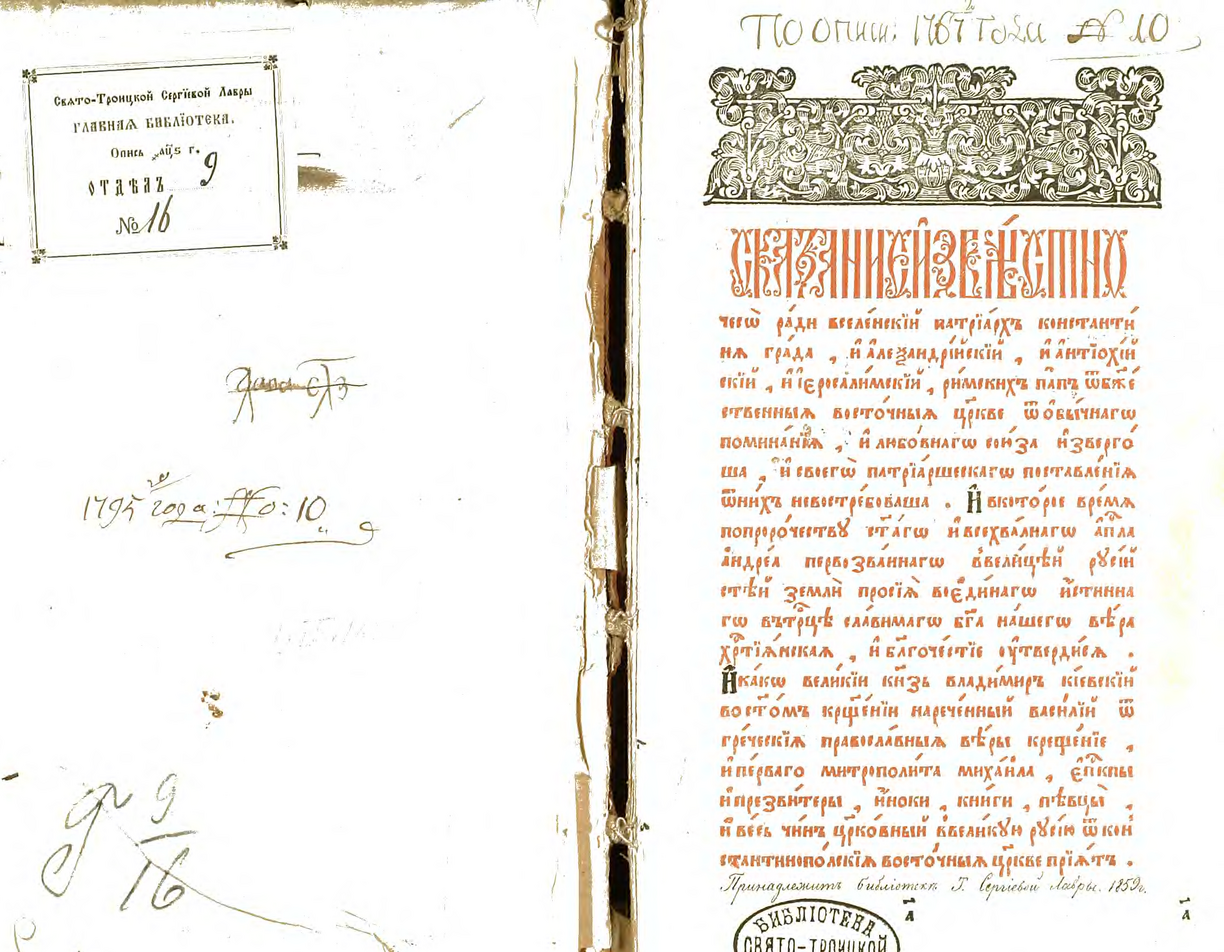 Свѧто-Троицкой Сергїевой Лавры
ГЛАВНАЯ БИБЛЇОТЕКА.
Опись г.
ОТДѢЛЪ 9
№ 16
1795 года: No: 10
9
16
По описи: 1767 года № 10
СКАЗАНИЕ И҆ЗВѢ́СТНО
чесѡ̀ ра́ди вселе́нскїй патрїа́рхъ константи́
нѧ гра́да , и҆ а҆леѯандрі́йскїй , и҆ а҆нтїохі́й
скїй , и҆ і҆єросали́мскїй , ри́мскихъ па́пъ ѿ бж҃е
ственныѧ восто́чныѧ цр҃кве ѿ ѻ҆бы́чнагѡ
помина́нїѧ , и҆ любо́внагѡ сою́за и҆зверго́
ша , и҆ своегѡ̀ патрїа́ршескагѡ поставле́нїѧ
ѿ ни́хъ невостре́боваша . И҆ в кото́рое вре́мѧ
по проро́честву ст҃а́гѡ и҆ всехва́лнагѡ а҆пⷭ҇ла
а҆ндре́а первозва́ннагѡ в вели́цѣй русі́й
стѣ́й землѝ просїѧ̀ во є҆ди́нагѡ и҆́стинна
гѡ въ трⷪ҇цѣ сла́вимагѡ бг҃а на́шегѡ вѣ́ра
хрⷭ҇тїѧ́нскаѧ , и҆ бл҃гоче́стїе ᲂу҆тверди́сѧ .
И҆ ка́кѡ вели́кїи кнѧ́зь влади́миръ кі́евскїй
во ст҃о́мъ крщ҃е́нїи нарече́нный васи́лїй ѿ
гре́ческїѧ правосла́вныѧ вѣ́ры креще́нїе ,
и҆ пе́рваго митрополи́та михаи́ла , є҆пⷭ҇кпы
и҆ презви́теры , и҆́ноки , кни́ги , пѣвцы̀ ,
и҆ ве́сь чи́нъ цр҃ко́вный в вели́кую русі́ю ѿ кон
стантинопо́лскїѧ восто́чныѧ цр҃кве прїѧ́тъ .
Принадлежитъ библіотекѣ Т. Сергіевой Лавры. 1859 г.
а
а
БИБЛІОТЕКА
СВЯТО-ТРОИЦКОЙ